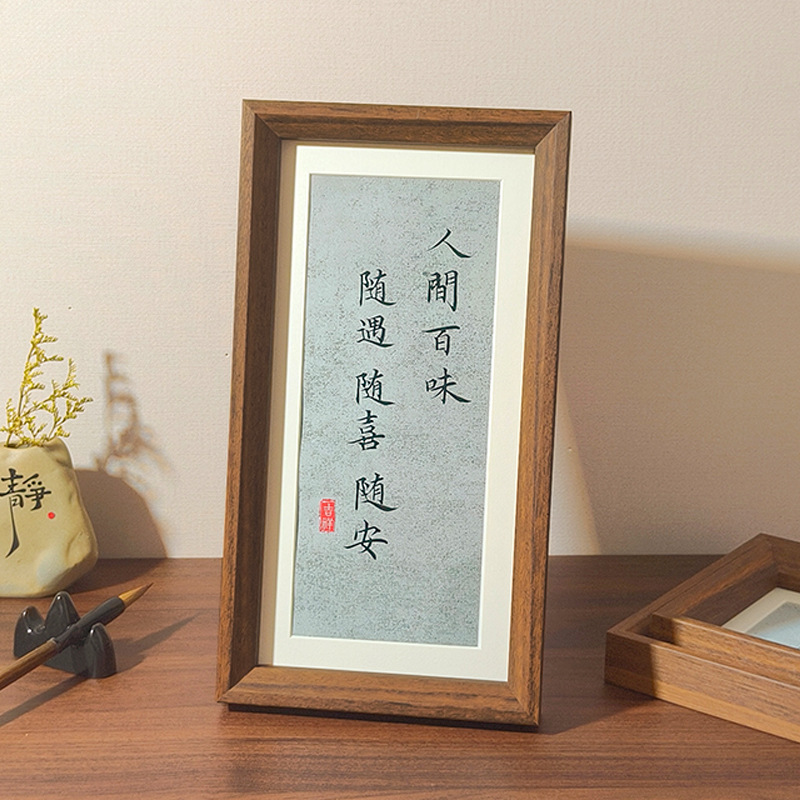 人間百味
随遇 随喜 随安
吉祥
靜